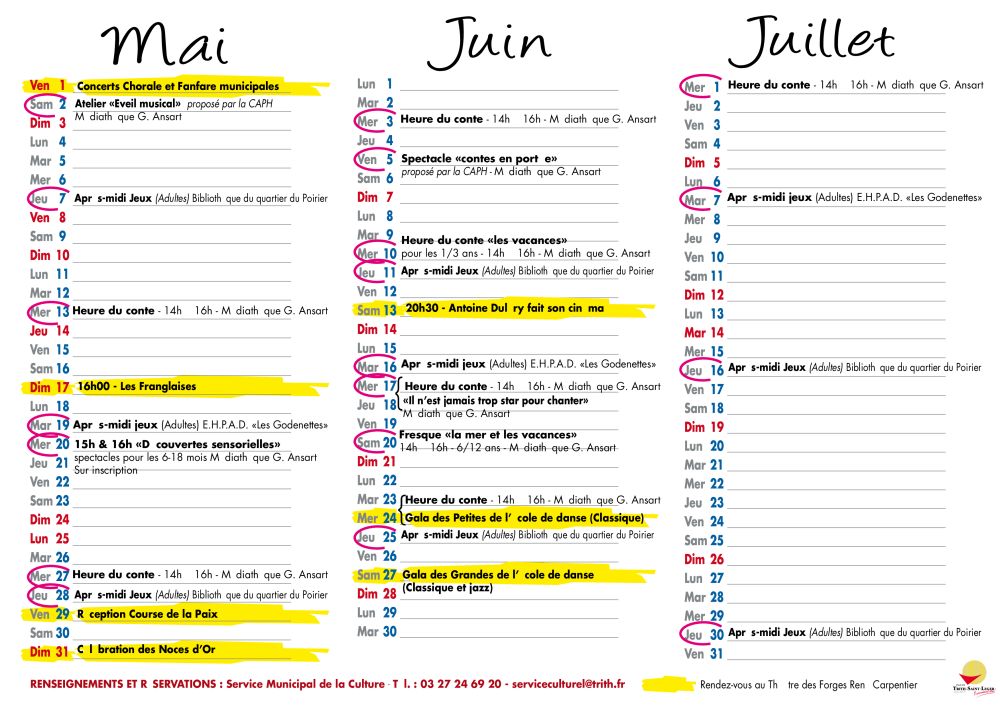 Mai
Ven 1 Concerts Chorale et Fanfare municipales
Sam 2 Atelier «Eveil musical» proposé par la CAPH
M diath que G. Ansart
Dim 3
Lun 4
Mar 5
Mer 6
Jeu 7 Apr s-midi Jeux (Adultes) Biblioth que du quartier du Poirier
Ven 8
Sam 9
Dim 10
Lun 11
Mar 12
Mer 13 Heure du conte - 14h 16h - M diath que G. Ansart
Jeu 14
Ven 15
Sam 16
Dim 17 16h00 - Les Franglaises
Lun 18
Mar 19 Apr s-midi jeux (Adultes) E.H.P.A.D. «Les Godenettes»
Mer 20 15h & 16h «D couvertes sensorielles»
spectacles pour les 6-18 mois M diath que G. Ansart
Jeu 21
Sur inscription
Ven 22
Sam 23
Dim 24
Lun 25
Mar 26
Mer 27 Heure du conte - 14h 16h - M diath que G. Ansart
Jeu 28 Apr s-midi Jeux (Adultes) Biblioth que du quartier du Poirier
Ven 29 R ception Course de la Paix
Sam 30
Dim 31 C l bration des Noces d'Or
Juin
Lun 1
Mar 2
Mer 3 Heure du conte - 14h 16h - M diath que G. Ansart
Jeu 4
Ven 5 Spectacle «contes en port e»
proposé par la CAPH - M diath que G. Ansart
Sam 6
Dim 7
Lun 8
Mar 9
Heure du conte «les vacances»
Mer 10 pour les 1/3 ans - 14h 16h - M diath que G. Ansart
Jeu 11 Apr s-midi Jeux (Adultes) Biblioth que du quartier du Poirier
Ven 12
Sam 13 20h30 - Antoine Dul ry fait son cin ma
Dim 14
Lun 15
Mar 16 Apr s-midi jeux (Adultes) E.H.P.A.D. «Les Godenettes»
Mer 17 { Heure du conte - 14h 16h - M diath que G. Ansart
«Il n'est jamais trop star pour chanter»
Jeu 18
M diath que G. Ansart
Ven 19
Fresque «la mer et les vacances»
Sam 20 14h 16h - 6/12 ans - M diath que G. Ansart
Dim 21
Lun 22
Mar 23 { Heure du conte - 14h 16h - M diath que G. Ansart
Mer 24 Gala des Petites de l' cole de danse (Classique)
Jeu 25 Apr s-midi Jeux (Adultes) Biblioth que du quartier du Poirier
Ven 26
Sam 27 Gala des Grandes de l' cole de danse
(Classique et jazz)
Dim 28
Lun 29
Mar 30
Juillet
Mer 1 Heure du conte - 14h 16h - M diath que G. Ansart
Jeu 2
Ven 3
Sam 4
Dim 5
Lun 6
Mar 7 Apr s-midi jeux (Adultes) E.H.P.A.D. «Les Godenettes»
Mer 8
Jeu 9
Ven 10
Sam 11
Dim 12
Lun 13
Mar 14
Mer 15
Jeu 16 Apr s-midi Jeux (Adultes) Biblioth que du quartier du Poirier
Ven 17
Sam 18
Dim 19
Lun 20
Mar 21
Mer 22
Jeu 23
Ven 24
Sam 25
Dim 26
Lun 27
Mar 28
Mer 29
Jeu 30 Apr s-midi Jeux (Adultes) Biblioth que du quartier du Poirier
Ven 31
RENSEIGNEMENTS ET R SERVATIONS : Service Municipal de la Culture - T l. : 03 27 24 69 20 - serviceculturel@trith.fr
Rendez-vous au Th tre des Forges Ren Carpentier
TRITH SAINT LEGER